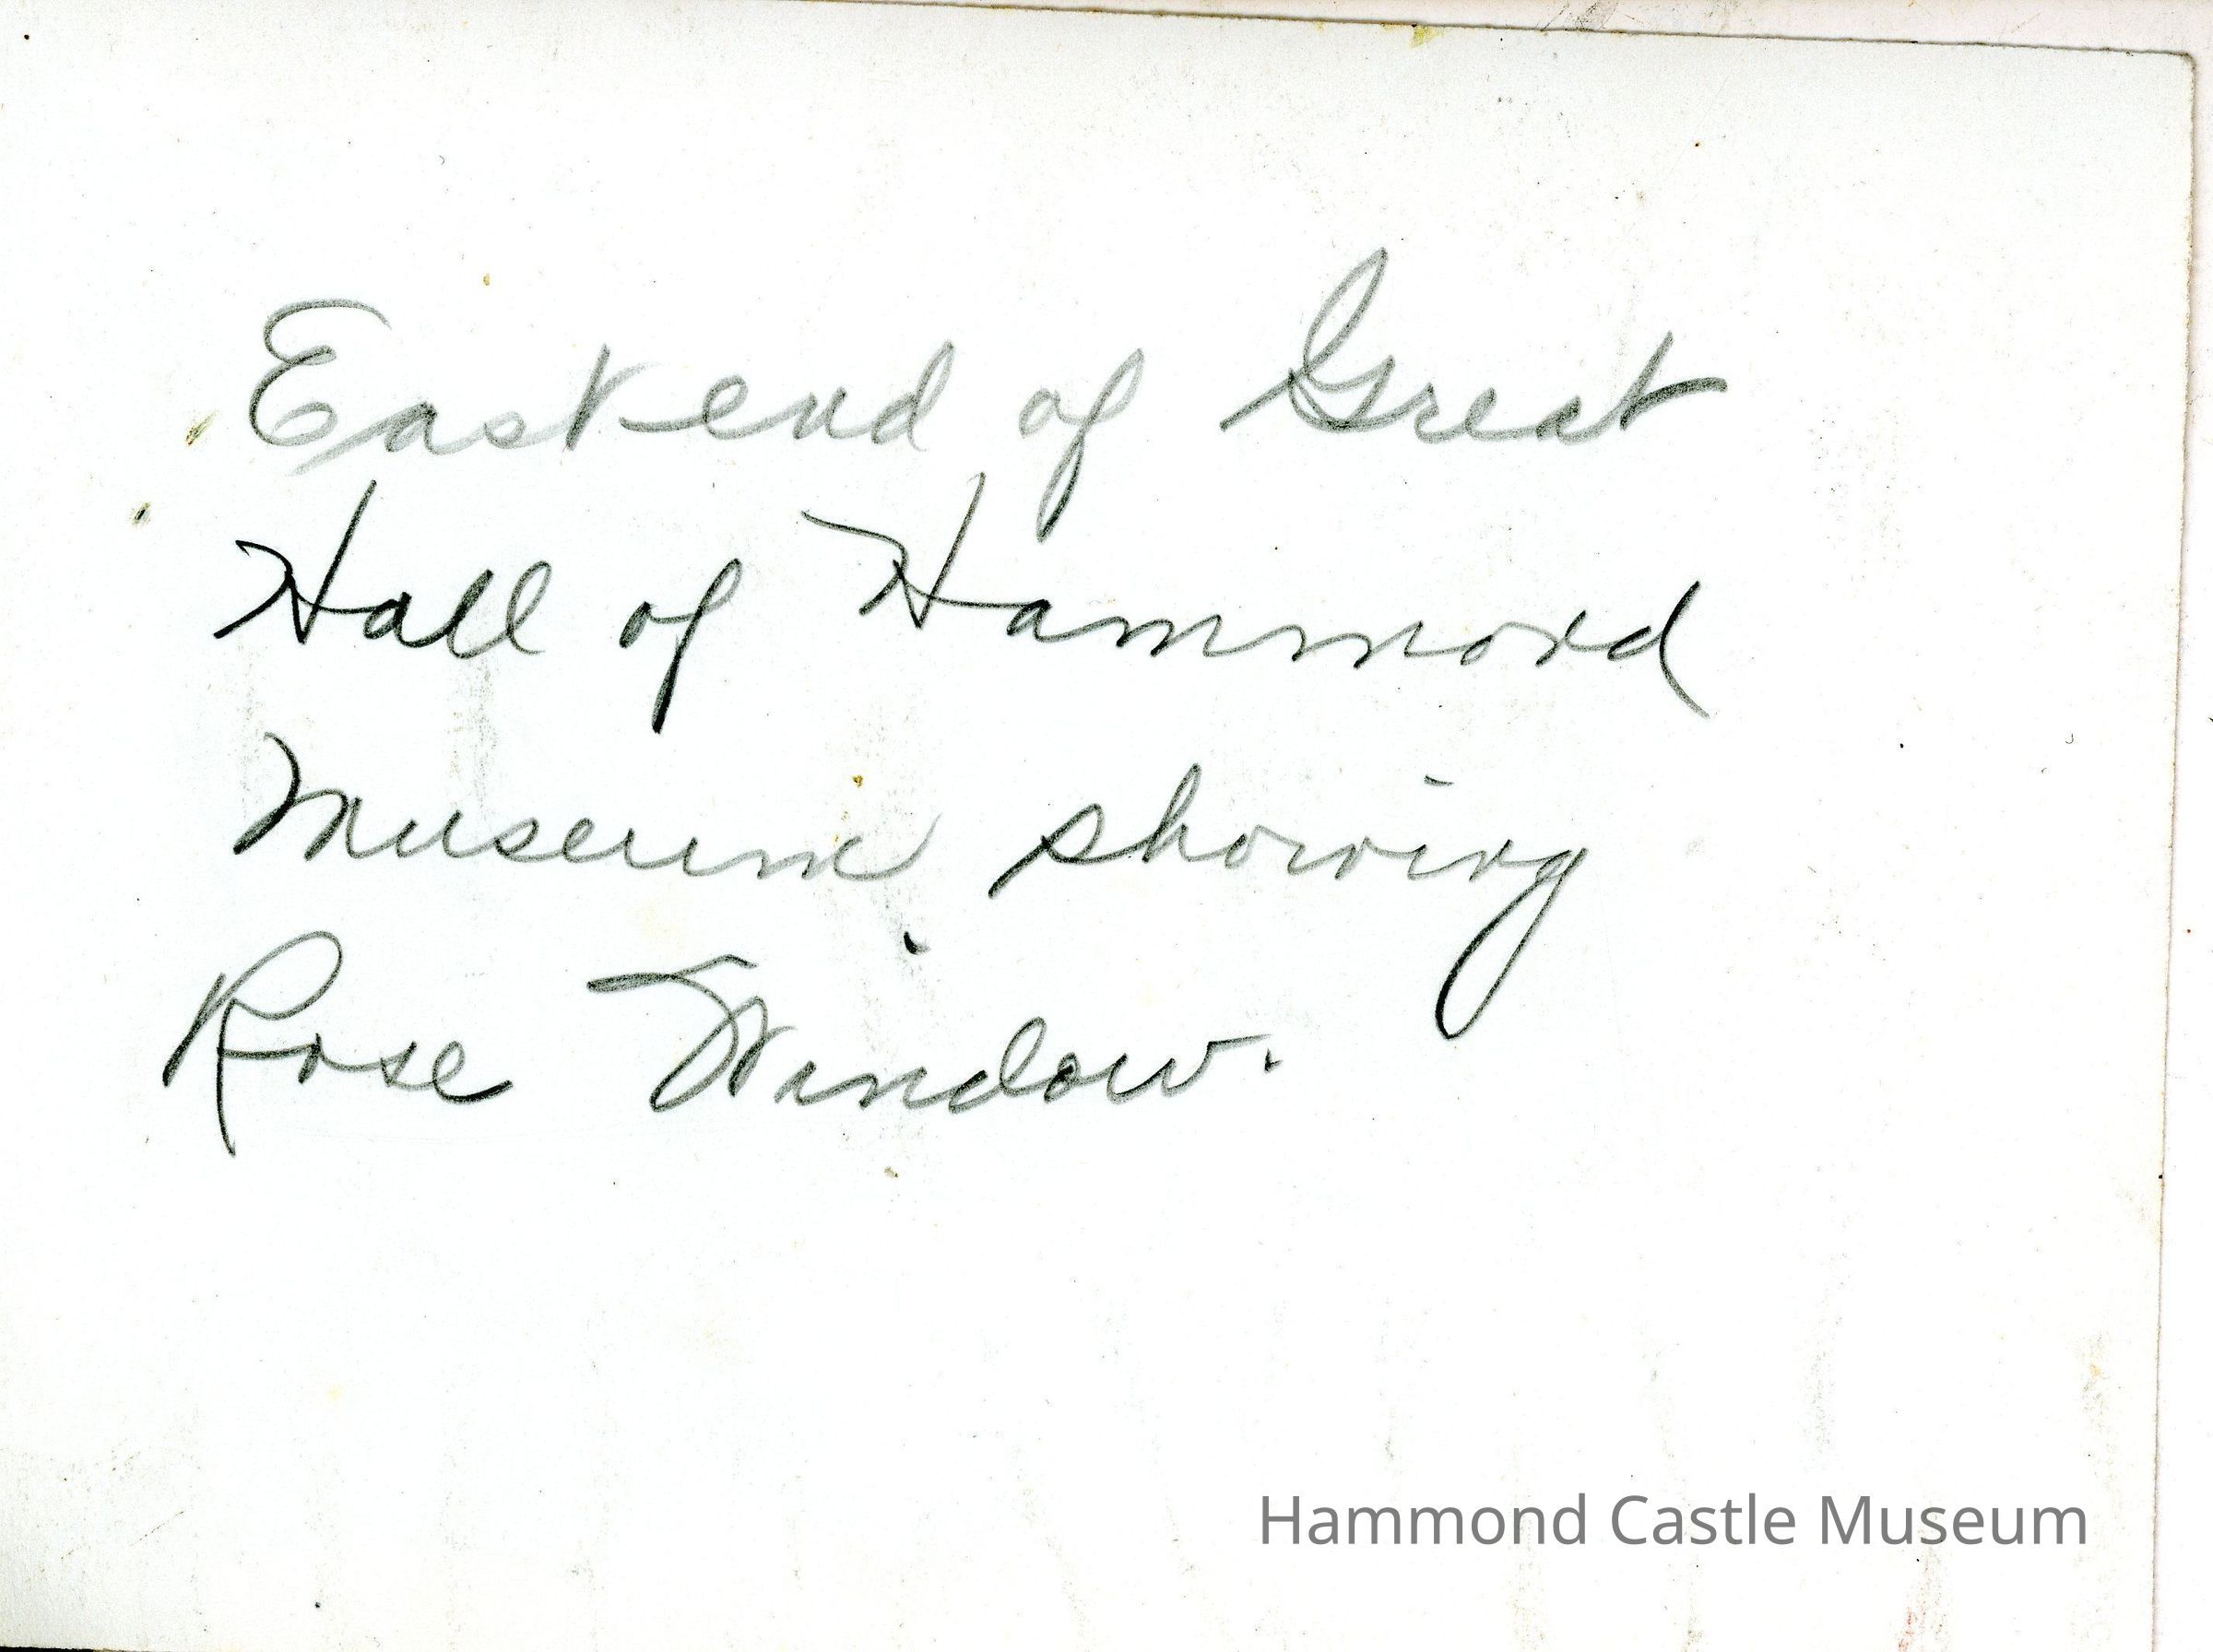 East end of Great
Hall of Hammond
Museum showing
Rose Window.
Hammond Castle Museum